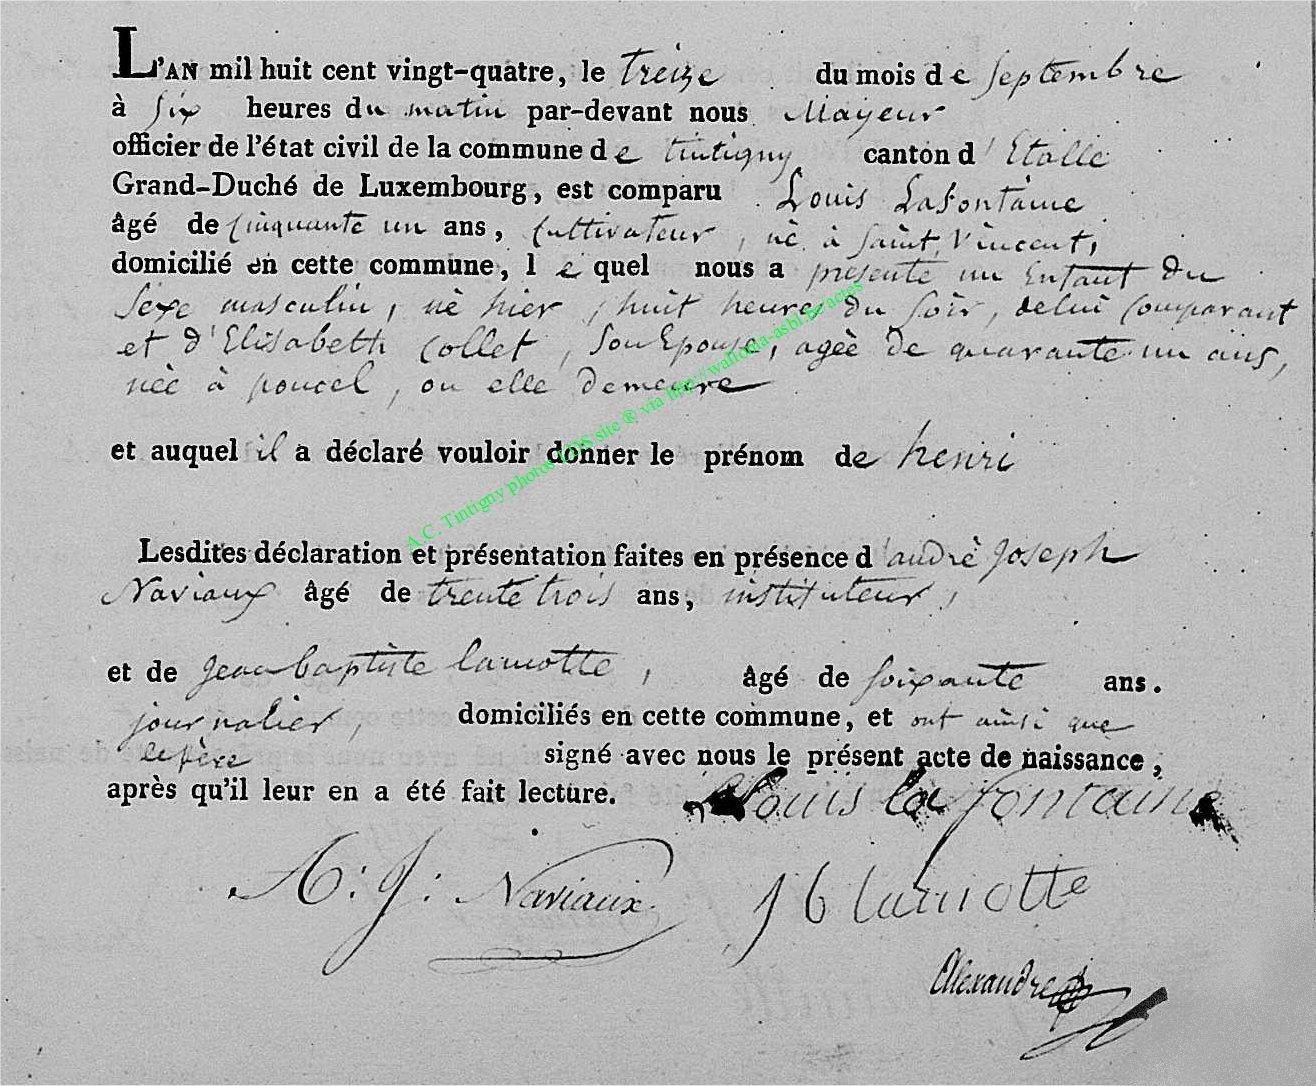 L'AN mil huit cent vingt-quatre, le treize du mois de septembre
à six heures du matin par-devant nous Mayeur
officier de l'état civil de la commune de tintigny canton d'Etalle
Grand-Duché de Luxembourg, est comparu Louis Lafontaine
âgé de Cinquante un ans, Cultivateur, nè à saint Vincent,
domicilié en cette commune, lequel nous a présenté un Enfant du
sexe masculin, nè hier, huit heures du soir, de lui Comparant
et d'Elisabeth Collet, son Epouse, agèe de quarante un ans,
nèe à poncel, ou elle demeure
et auquel il a déclaré vouloir donner le prénom de henri
Lesdites déclaration et présentation faites en présence d'andrè joseph
Naviaux âgé de trente trois ans, instituteur,
et de jean baptiste lamotte, âgé de soixante ans.
journalier, domiciliés en cette commune, et ont ainsi que
le père signé avec nous le présent acte de naissance,
après qu'il leur en a été fait lecture. Louis la fontaine
A: J: Naviaux. J b lamotte
Alexandre
A.C. Tintigny photos LDS site ® via http://wallonia-asbl.be/actes